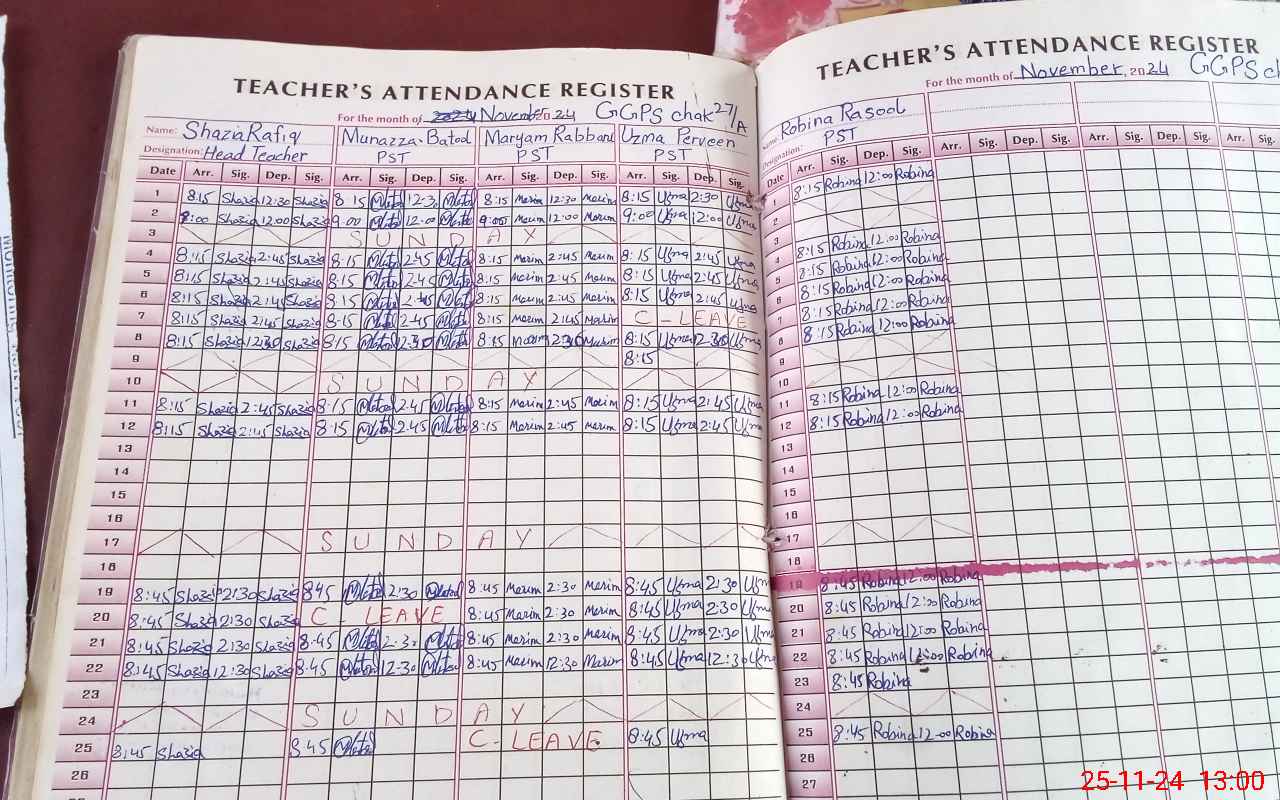 TEACHER'S ATTENDANCE REGISTER
For the month of November 2024 GGPS chak 27/A
Name: Shazia Rafiq Munazza Batool Maryam Rabbani Uzma Perveen
Designation: Head Teacher PST PST PST
Date Arr. Sig. Dep. Sig. Arr. Sig. Dep. Sig. Arr. Sig. Dep. Sig. Arr. Sig. Dep. Sig.
1 8:15 Shazia 12:30 Shazia 8 15 12-30 8:15 Marim 12:30 Marim 8:15 Uzma 2:30 Uzma
2 9:00 Shazia 12:00 Shazia 9-00 12-00 9:00 Marim 12:00 Marim 9:00 Uzma 12:00 Uzma
3 S U N D A Y
4 8:15 Shazia 2:45 Shazia 8-15 2-45 8:15 Marim 2:45 Marim 8:15 Uzma 2:45 Uzma
5 8:15 Shazia 2:45 Shazia 8-15 2-45 8:15 Marim 2:45 Marim 8:15 Uzma 2:45 Uzma
6 8:15 Shazia 2:45 Shazia 8-15 2-45 8:15 Marim 2:45 Marim 8:15 Uzma 2:45 Uzma
7 8:15 Shazia 2:45 Shazia 8-15 2-45 8:15 Marim 2:45 Marim C-LEAVE
8 8:15 Shazia 12:30 Shazia 8-15 2-30 8:15 Marim 2:30 Marim 8:15 Uzma 12:30 Uzma
9 8:15
10 S U N D A Y
11 8:15 Shazia 2:45 Shazia 8-15 2-45 8:15 Marim 2:45 Marim 8:15 Uzma 2:45 Uzma
12 8:15 Shazia 2:45 Shazia 8-15 2-45 8:15 Marim 2:45 Marim 8:15 Uzma 2:45 Uzma
13
14
15
16
17 S U N D A Y
18
19 8:45 Shazia 2:30 Shazia 8-45 2:30 8:45 Marim 2:30 Marim 8:45 Uzma 2:30 Uzma
20 8:45 Shazia 2:30 Shazia C-LEAVE 8:45 Marim 2:30 Marim 8:45 Uzma 2:30 Uzma
21 8:45 Shazia 2:30 Shazia 8-45 2-30 8:45 Marim 2:30 Marim 8:45 Uzma 2:30 Uzma
22 8:45 Shazia 12:30 Shazia 8-45 12-30 8:45 Marim 12:30 Marim 8:45 Uzma 12:30 Uzma
23
24 S U N D A Y
25 8:45 Shazia 8-45 C-LEAVE 8:45 Uzma
26
TEACHER'S ATTENDANCE REGISTER
For the month of November, 2024 GGPS ch
Name: Robina Rasool
Designation: PST
Date Arr. Sig. Dep. Sig. Arr. Sig. Dep. Sig. Arr. Sig. Dep. Sig. Arr. Sig.
1 8:15 Robina 12:00 Robina
2
3
4 8:15 Robina 12:00 Robina
5 8:15 Robina 12:00 Robina
6 8:15 Robina 12:00 Robina
7 8:15 Robina 12:00 Robina
8 8:15 Robina 12:00 Robina
9
10
11 8:15 Robina 12:00 Robina
12 8:15 Robina 12:00 Robina
13
14
15
16
17
18
19 8:45 Robina 12:00 Robina
20 8:45 Robina 12:00 Robina
21 8:45 Robina 12:00 Robina
22 8:45 Robina 12:00 Robina
23 8:45 Robina
24
25 8:45 Robina 12-00 Robina
27
25-11-24 13:00